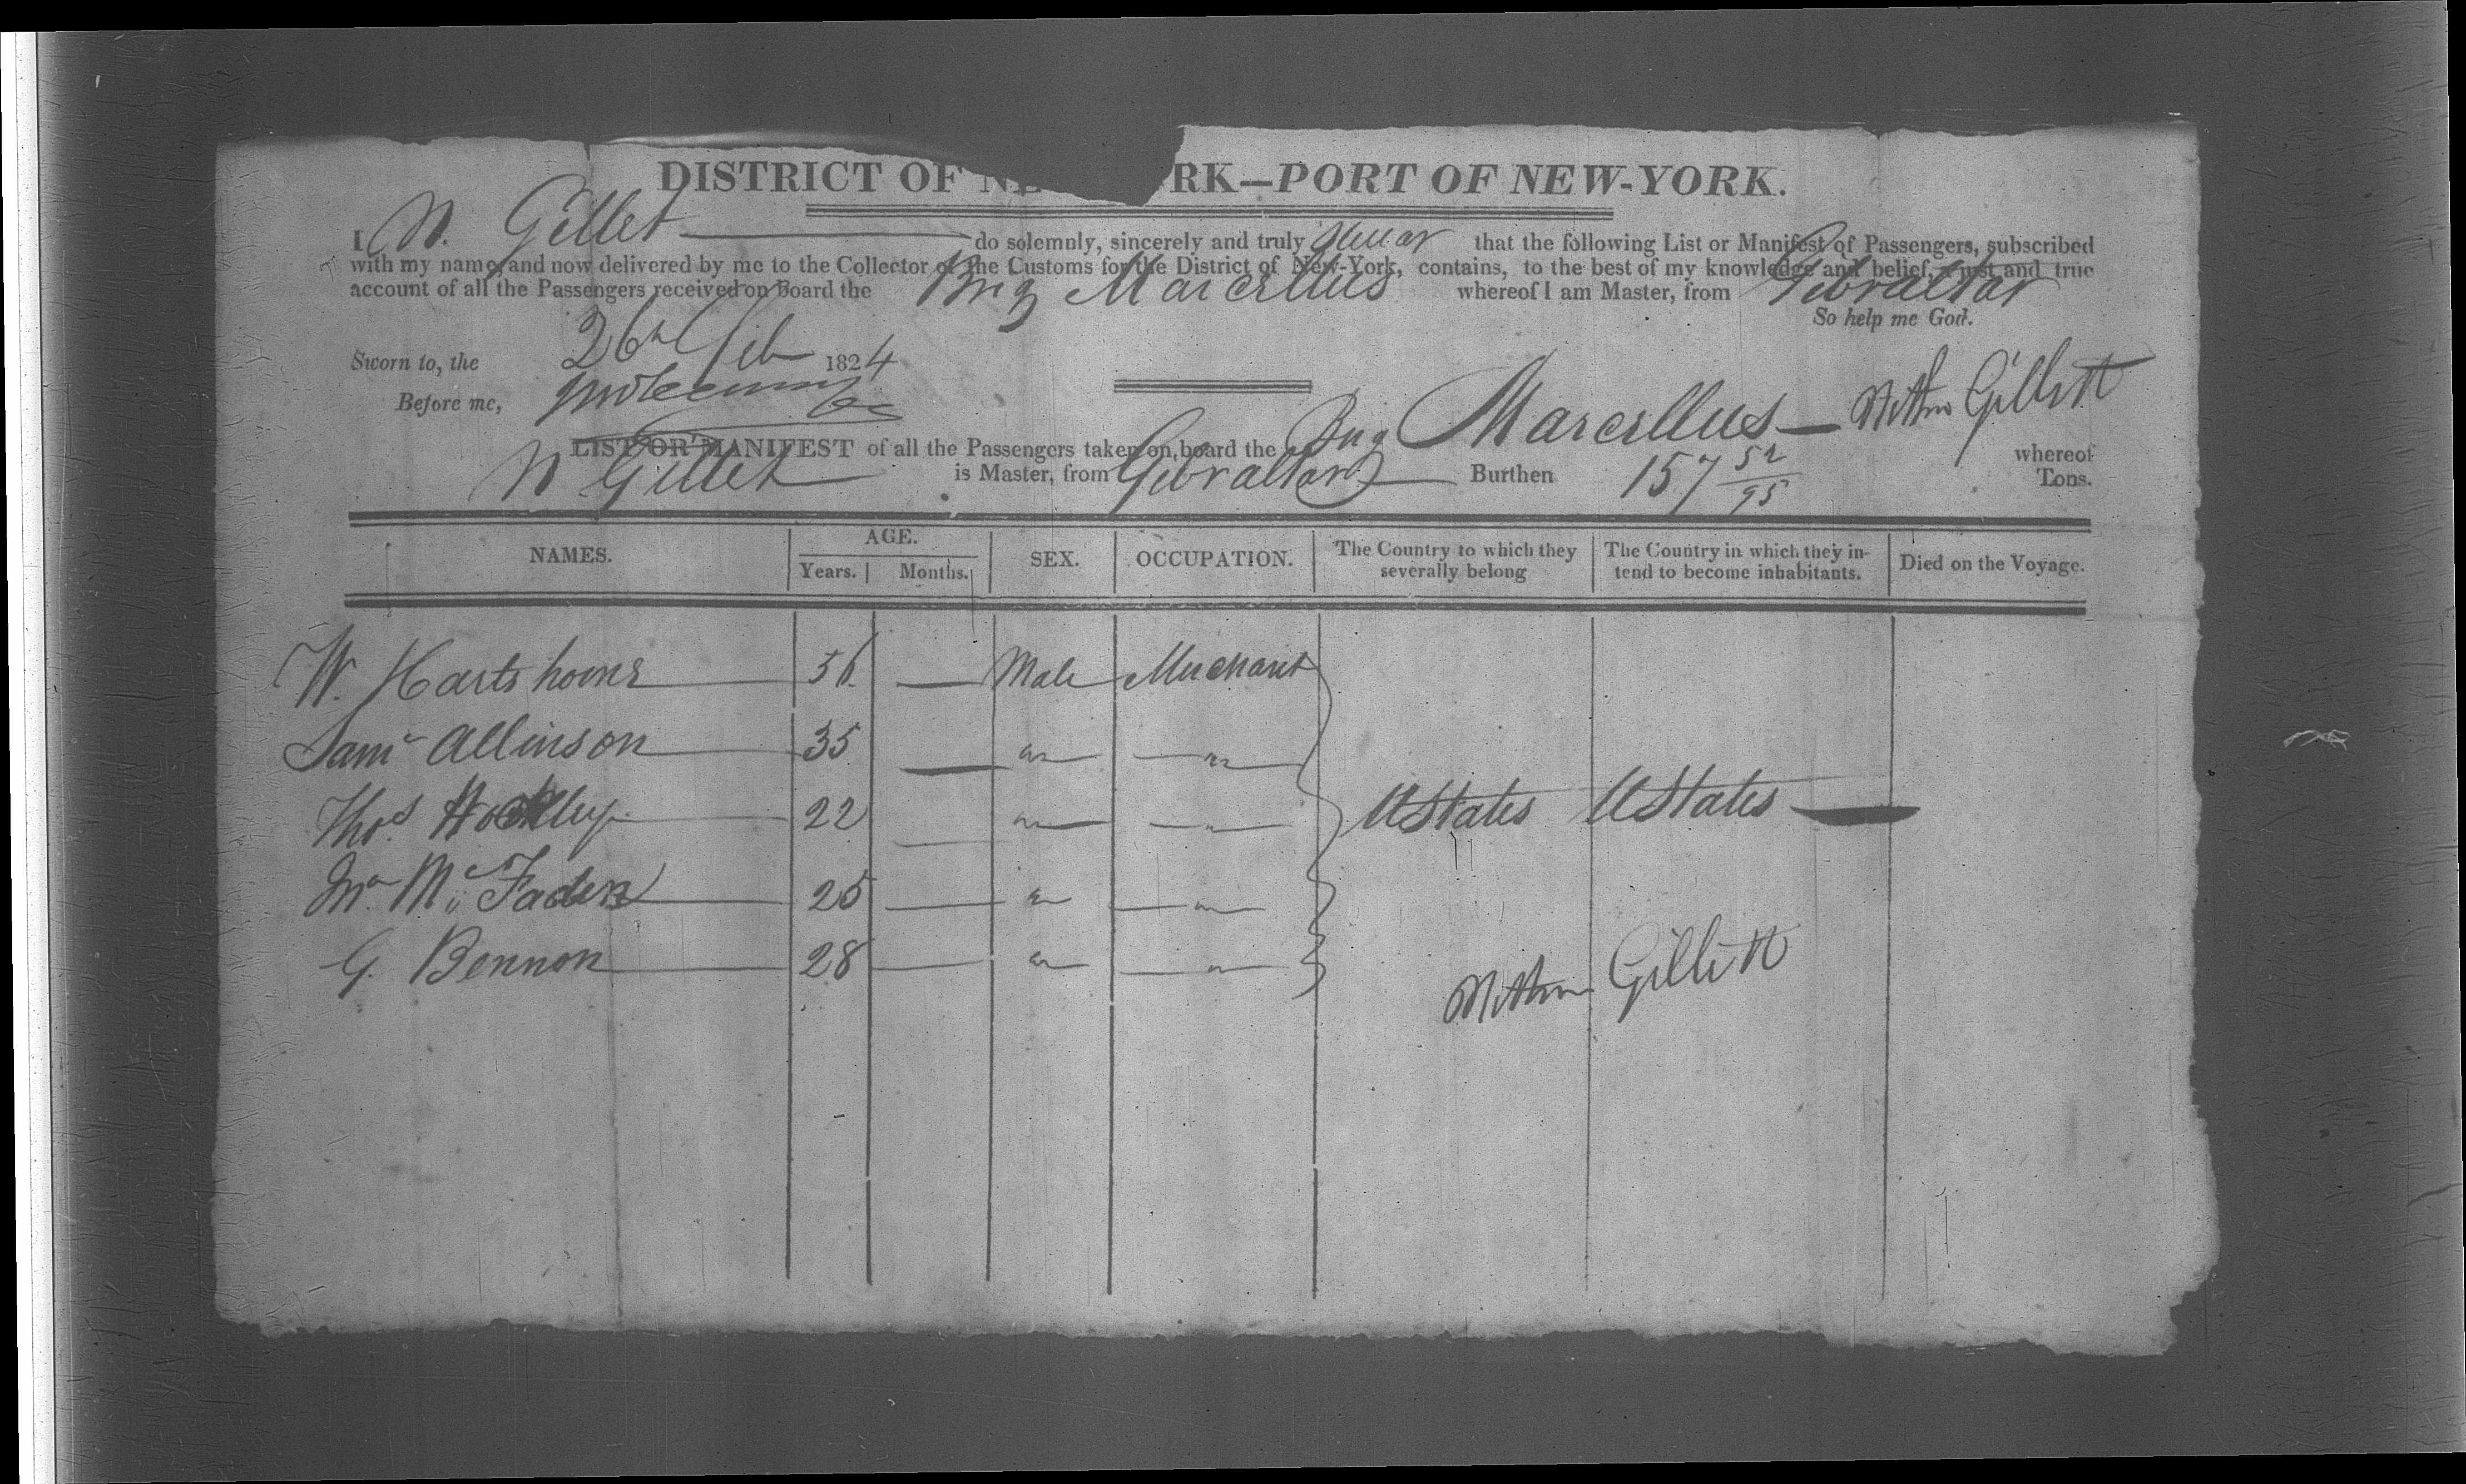 DISTRICT OF NE RK—PORT OF NEW-YORK.
I N. Gillet do solemnly, sincerely and truly swear that the following List or Manifest of Passengers, subscribed
with my name, and now delivered by me to the Collector of the Customs for the District of New-York, contains, to the best of my knowledge and belief, a just and true
account of all the Passengers received on board the Brig Marcellus whereof I am Master, from Gibraltar
So help me God.
Sworn to, the 26th Feb 1824
Before me,
Gillett
LIST OR MANIFEST of all the Passengers taken on board the Brig Marcellus — whereof
N Gillet is Master, from Gibraltar Burthen 157 52/95 Tons.
NAMES. AGE. SEX. OCCUPATION. The Country to which they severally belong The Country in which they in-tend to become inhabitants. Died on the Voyage.
Years. Months.
W. Hartshorne 56 — Male Merchant
Saml Allinson 35 — " "
Thos 22 — " " UStates UStates —
Mr. McFaden 25 — " "
G. Bennon 28 — " "
Gillett